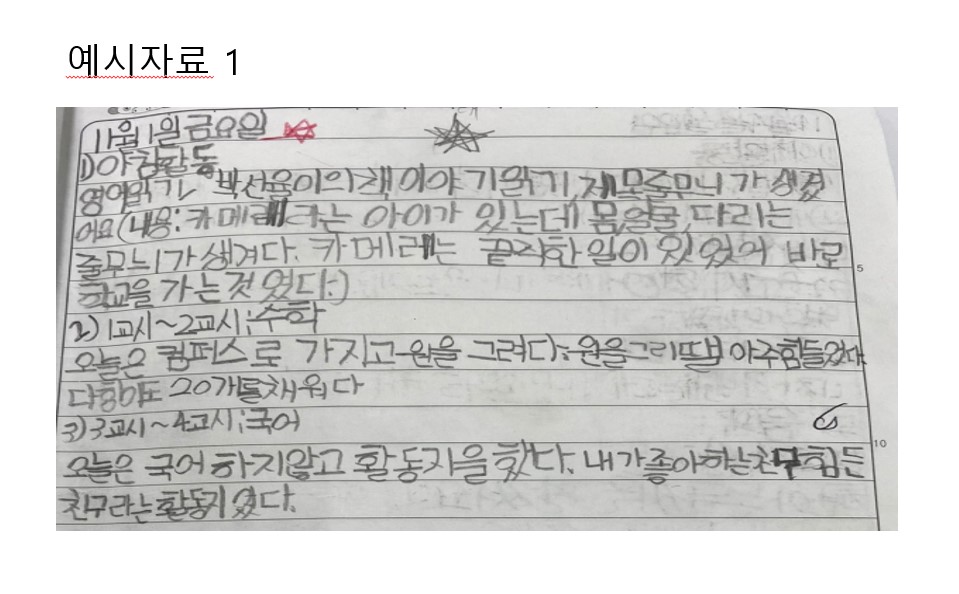 예시자료 1
11월 1일 금요일
1) 아침활동
영어읽기, 박선율이의 책 이야기 읽기, 제목줄무늬가 생겼
어요(내용: 카메라라는 아이가 있는데 몸,얼굴, 다리는
줄무늬가 생겨다. 카메라는 끔직한일이 있었어 바로
학교을 가는것였다.)
2) 1교시~2교시: 수학
오늘은 컴퍼스로 가지고 원을 그려다: 원을그리땐 아주힘들었다.
다행이도 20개를채워다
3) 3교시~4교시: 국어
오늘은 국어 하지않고 활동지을 했다. 내가좋아하는친구힘든
친구라는활동지였다.
5
10